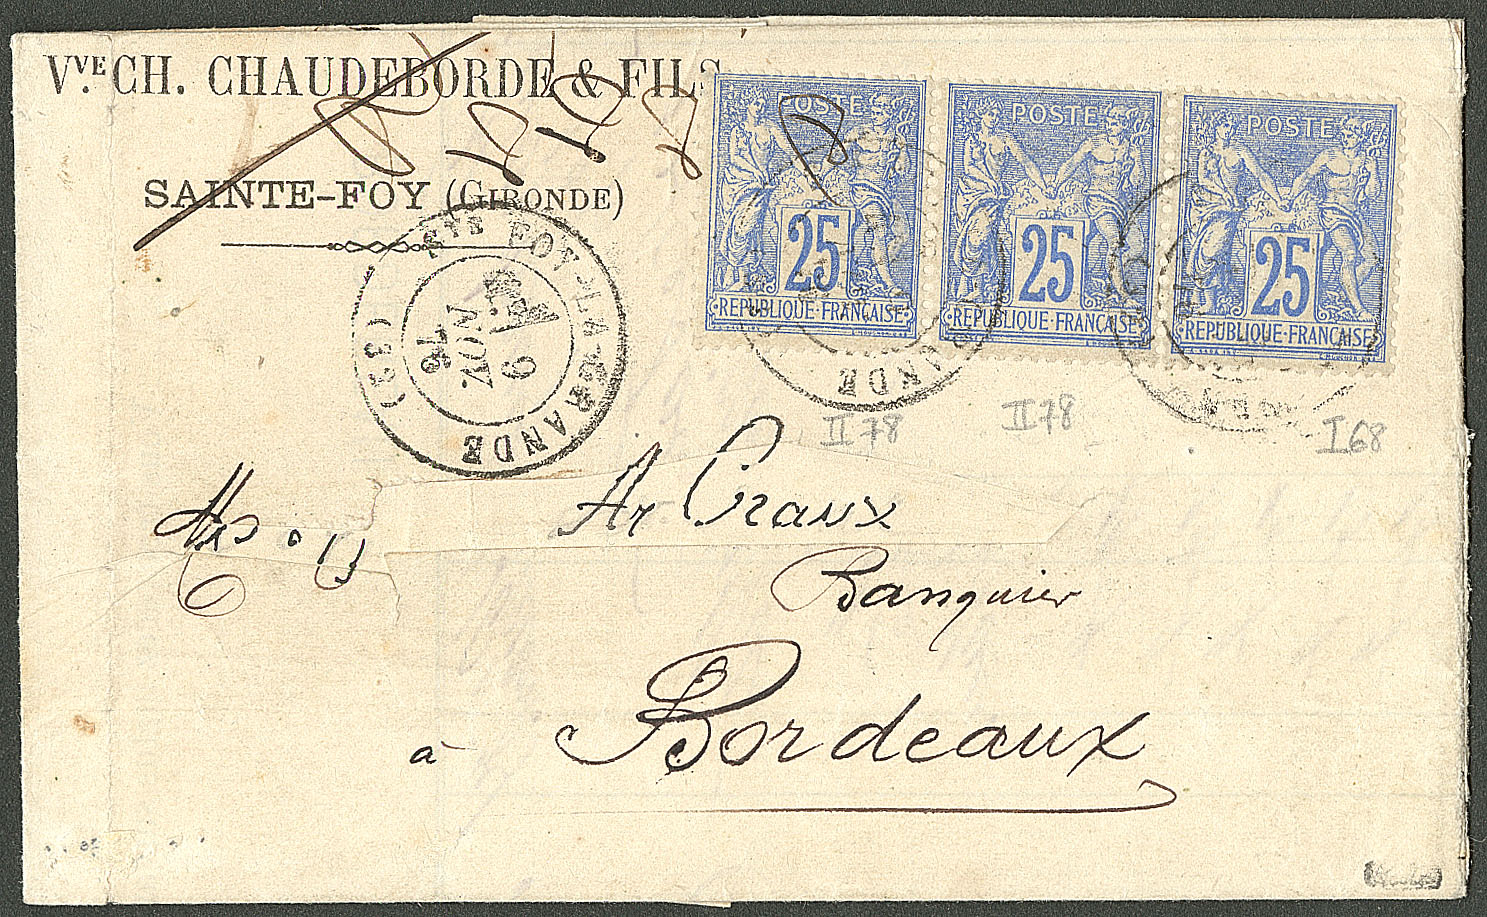 Vᵛᴱ. CH. CHAUDEBORDE & FILS
SAINTE-FOY (GIRONDE)
POSTE
25
REPUBLIQUE·FRANÇAISE
POSTE
25
REPUBLIQUE·FRANÇAISE
POSTE
25
REPUBLIQUE·FRANÇAISE
STE FOY-LA-GRANDE
9
NOV.
78
(33)
ANDE
II 78
II 78
I 68
Banquier
à Bordeaux